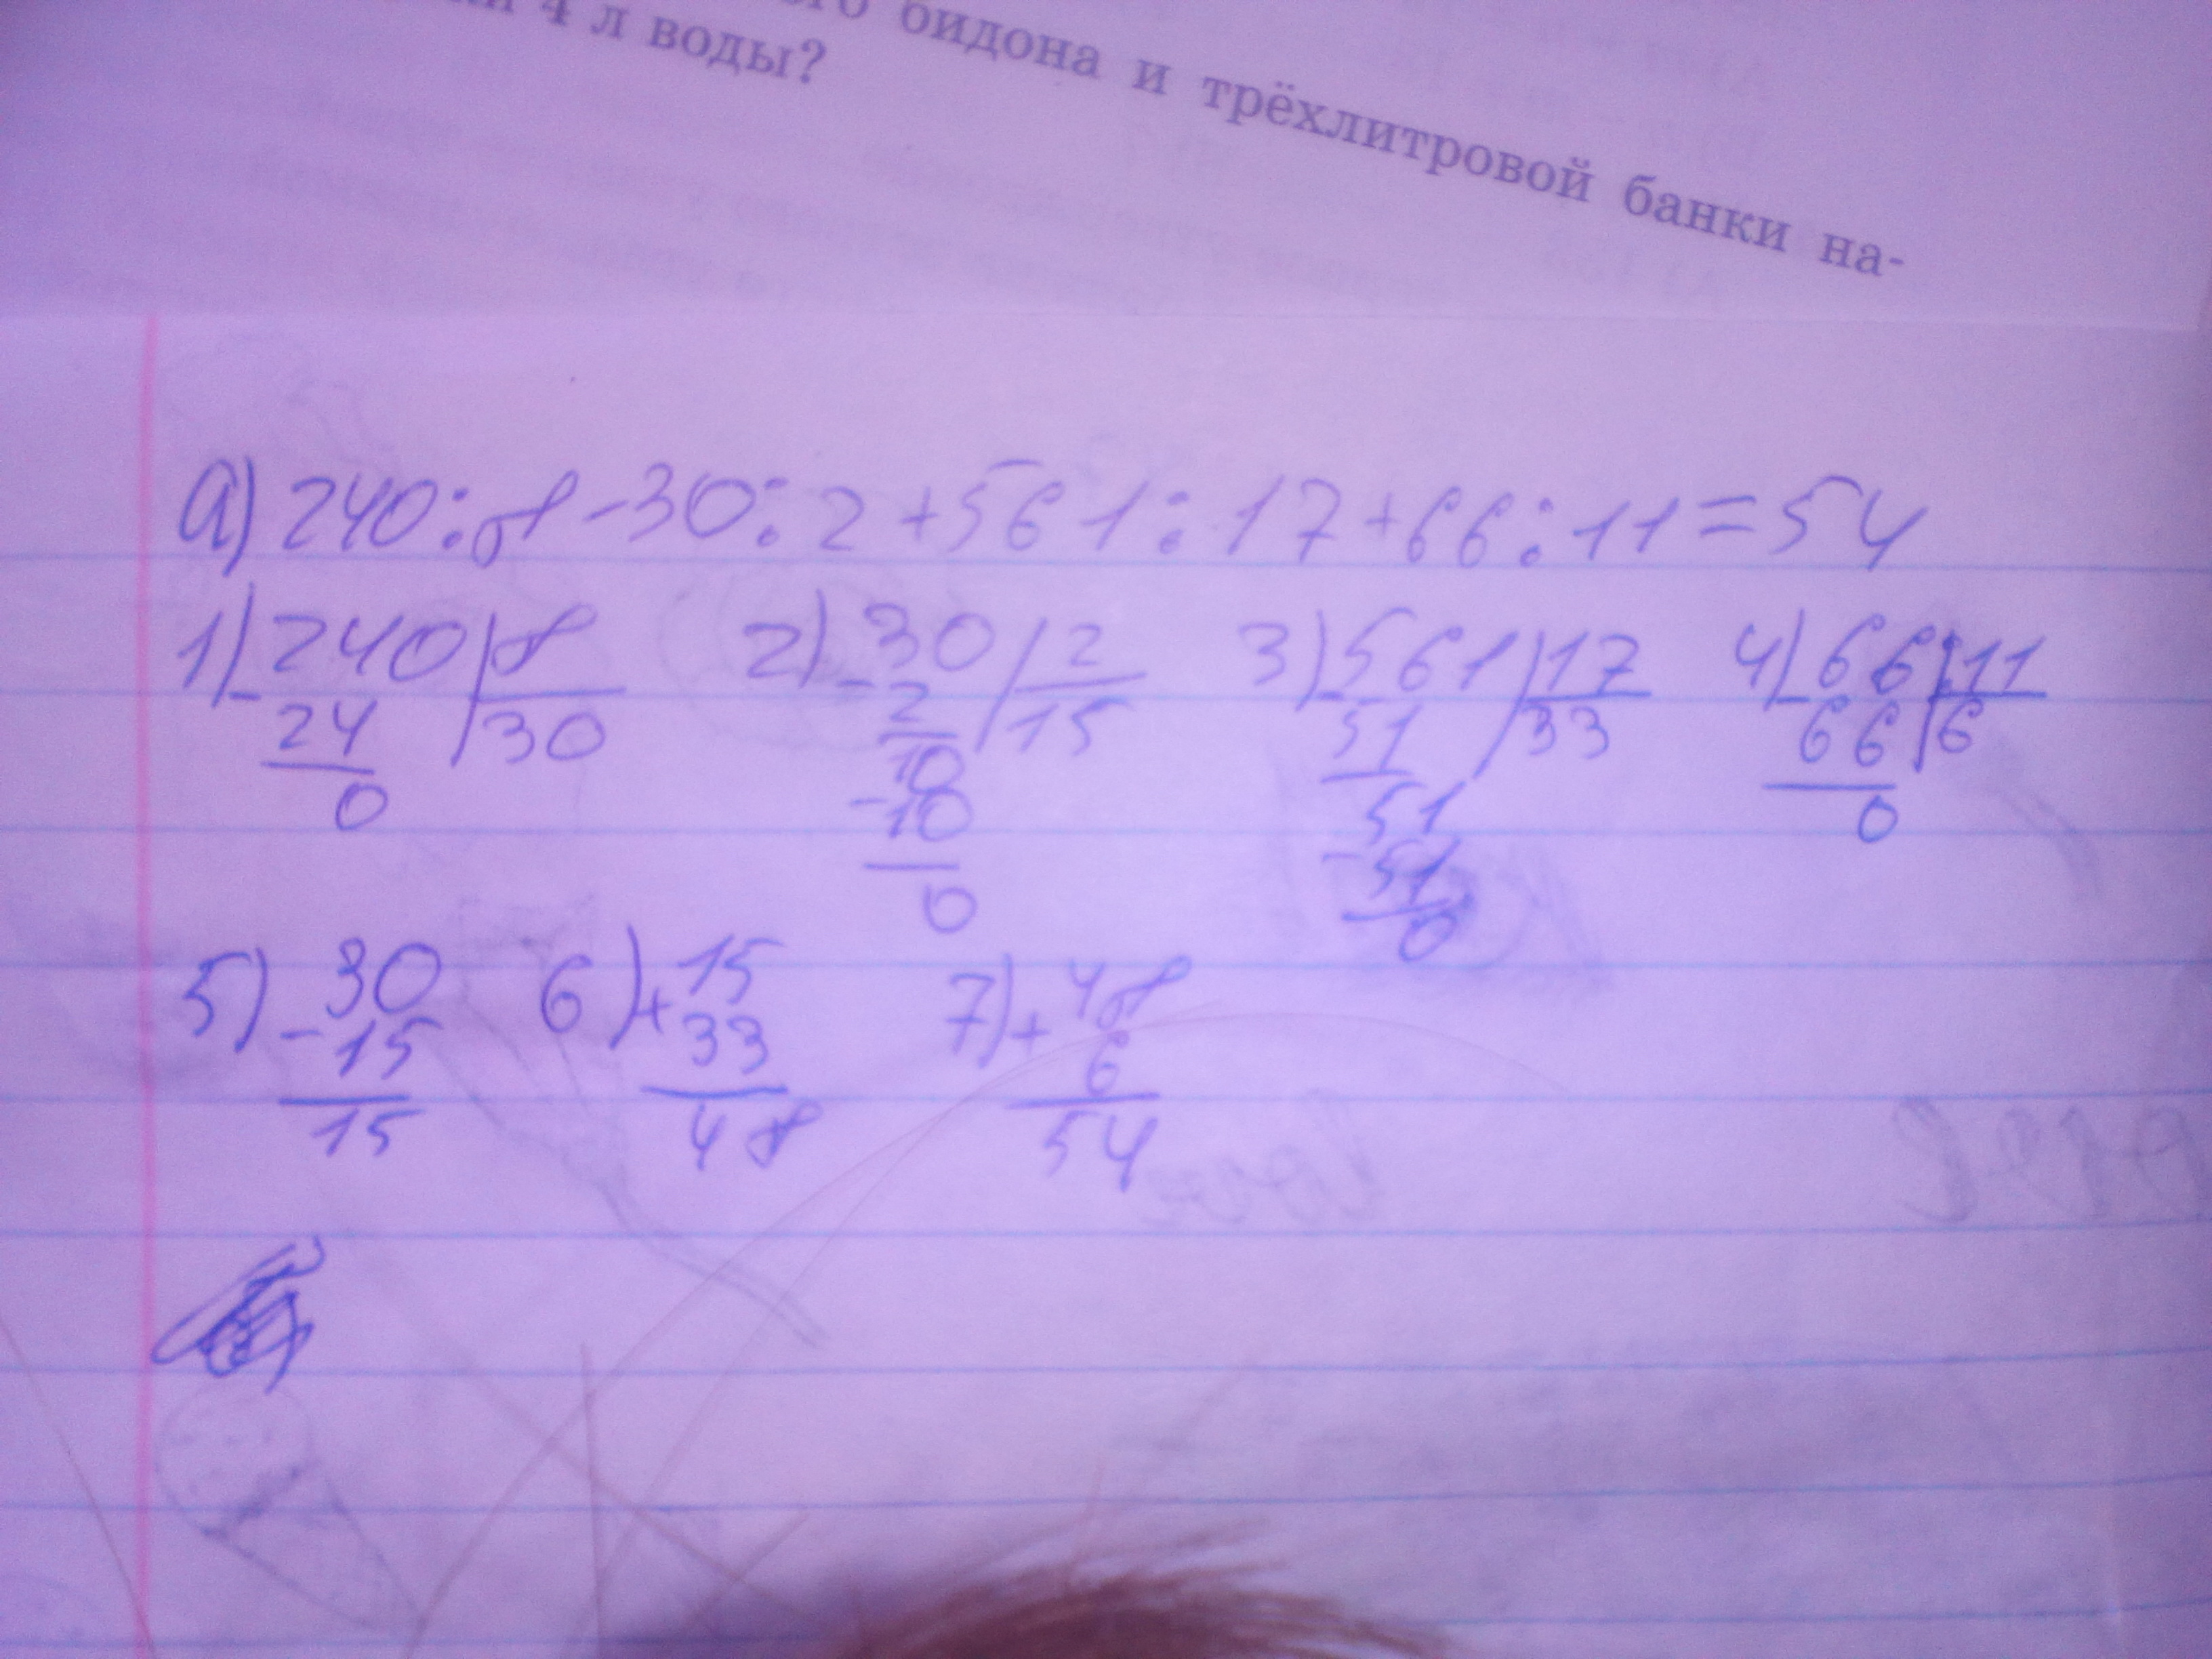 бидона и трёхлитровой банки на-
4 л воды?
а) 240 : 8 - 30 : 2 + 561 : 17 + 66 : 11 = 54
1) - 240 | 8 2) - 30 | 2 3) - 561 | 17 4) - 66 | 11
24 30 2 15 51 33 66 6
0 10 51 0
- 10 - 51
0 0
5) 30 6) + 15 7) + 48
- 15 33 6
15 48 54